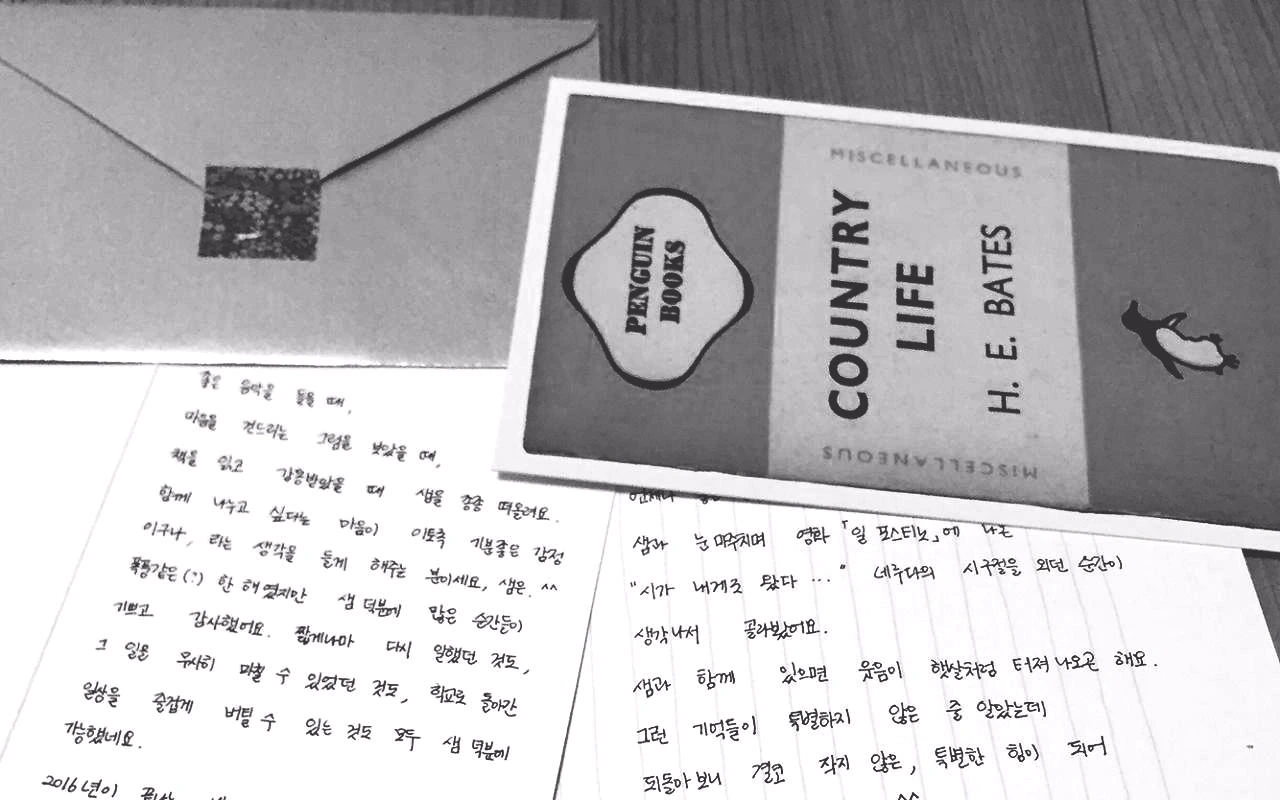 PENGUIN
BOOKS
MISCELLANEOUS
COUNTRY
LIFE
H. E. BATES
MISCELLANEOUS
좋은 음악을 들을 때,
마음을 건드리는 그림을 보았을 때,
책을 읽고 감흥받았을 때 샘을 종종 떠올려요.
함께 나누고 싶다는 마음이 이토록 기분좋은 감정
이구나, 라는 생각을 들게 해주는 분이세요, 샘은. ^^
폭풍같은(?) 한 해였지만 샘 덕분에 많은 순간들이
기쁘고 감사했어요. 짧게나마 다시 일했던 것도,
그 일을 무사히 마칠 수 있었던 것도, 학교로 돌아간
일상을 즐겁게 버틸 수 있는 것도 모두 샘 덕분에
가능했네요.
2016년이
언제나
샘과 눈 마주치며 영화 「일 포스티노」에 나온
"시가 내게로 왔다 ..." 네루다의 시구절을 외던 순간이
생각나서 골라봤어요.
샘과 함께 있으면 웃음이 햇살처럼 터져나오곤 해요.
그런 기억들이 특별하지 않은 줄 알았는데
되돌아보니 결코 작지 않은, 특별한 힘이 되어
^^